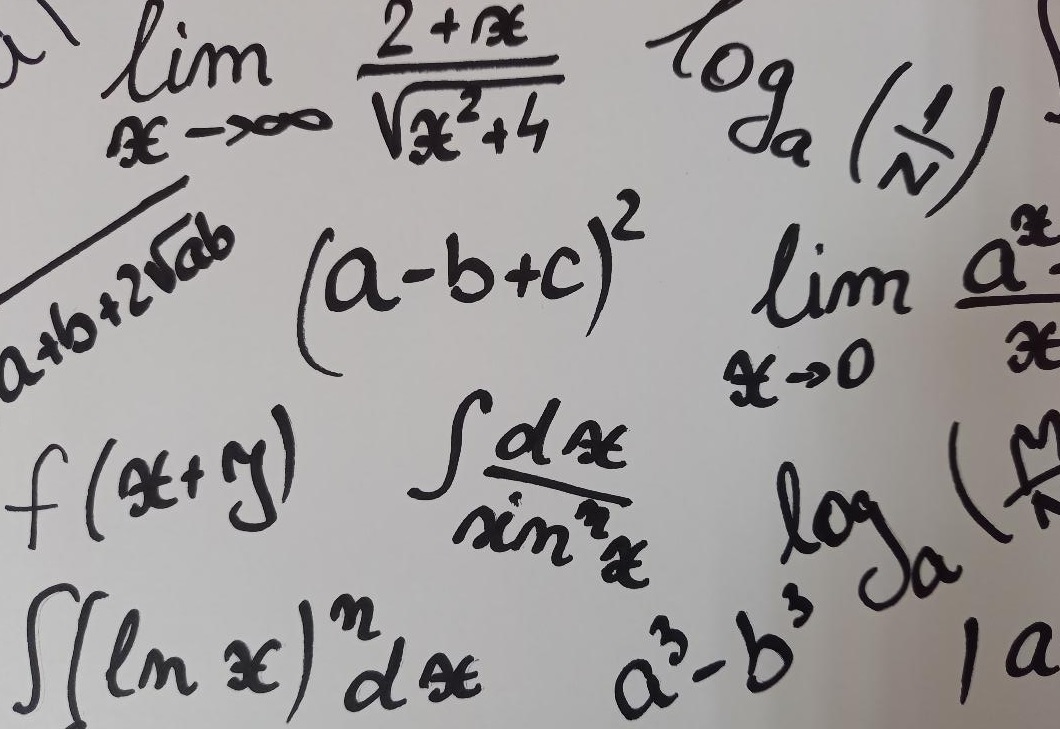 lim x→∞ (2+x)/√(x²+4)
logₐ(1/N)
√(a+b+2√ab)
(a-b+c)²
lim x→0 aˣ- / x
f(x+y)
∫ dx/sinⁿx
logₐ(M/N
∫(ln x)ⁿdx
a³-b³
|a